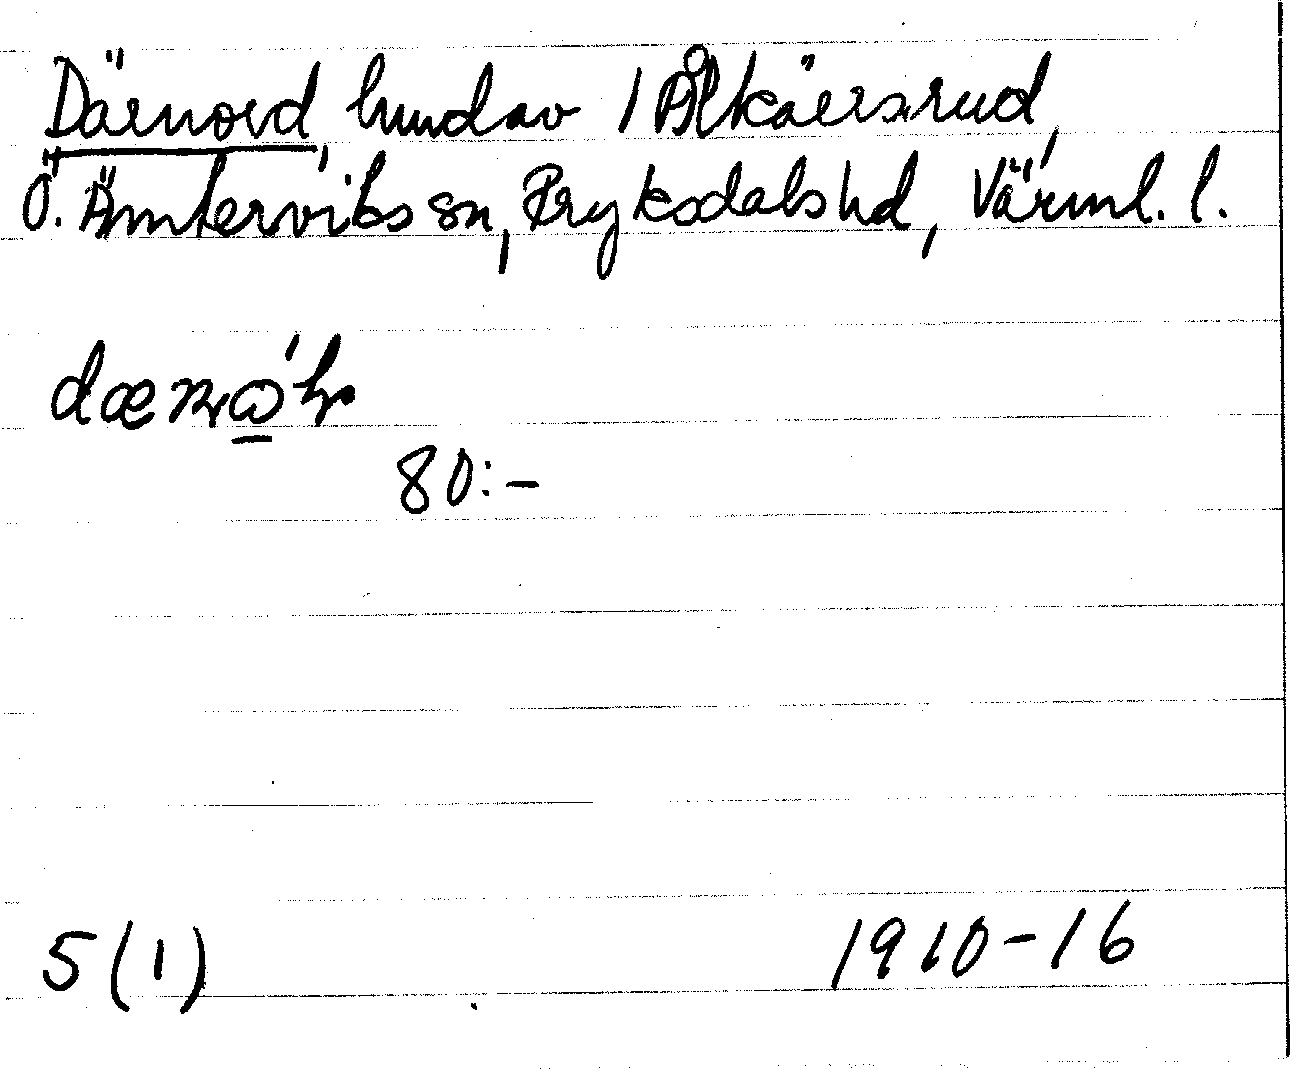 Därnord, hundav 1 Ålkärsrud,
Ö. Ämterviks sn, Fryksdals hd, Värml. l.
80:-
5 (1) 1910-16